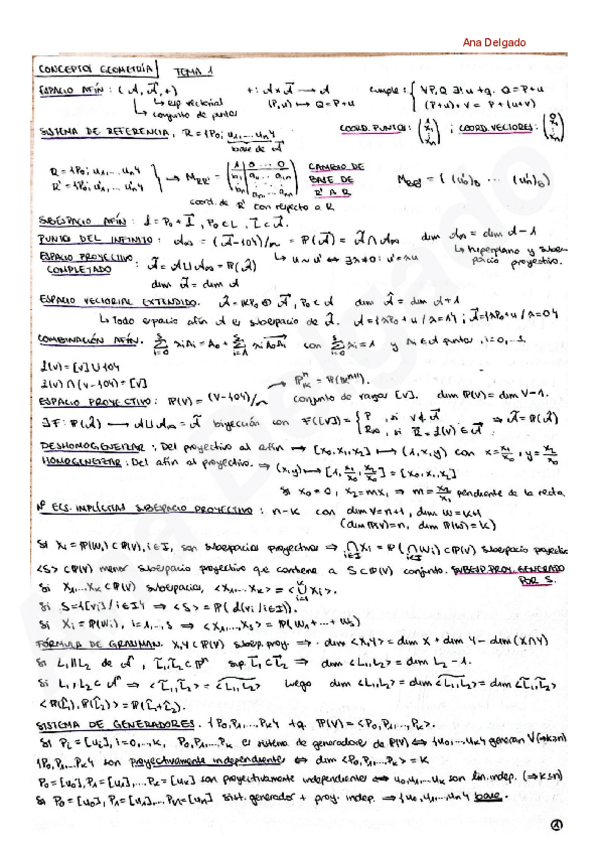 Ana Delgado
CONCEPTOS GEOMETRÍA TEMA 1
ESPACIO AFÍN: (A, A⃗, +) +: A×A⃗ → A cumple: { ∀P,Q ∃! u tq. Q = P+u
↳ esp vectorial (P,u) ↦ Q = P+u (P+u)+v = P+(u+v)
↳ conjunto de puntos
SISTEMA DE REFERENCIA, R = {P₀; u₁,... uₙ} COORD. PUNTOS: (1 x₁ ⋮ xₙ) ; COORD. VECTORES: (0 x₁ ⋮ xₙ)
base de A⃗
R = {P₀; u₁,... uₙ}
R' = {P₀'; u₁',... uₙ'} → M_RR' = (1 0 ... 0 / a₁ a₁₁ ... a₁ₙ / aₙ aₙ₁ ... aₙₙ) CAMBIO DE BASE DE R' A R M_BB' = ((u₁')_B ... (uₙ')_B)
coord. de R' con respecto a R
SUBESPACIO AFÍN: L = P₀ + L⃗, P₀ ∈ L, L⃗ ⊂ A⃗.
PUNTO DEL INFINITO: A∞ = (A⃗-{0})/∼ = P(A⃗) = Ā ∩ A∞ dim A∞ = dim A - 1
↳ u ∼ u' ⇔ ∃λ≠0: u' = λu ↳ hiperplano y subespacio proyectivo.
ESPACIO PROYECTIVO COMPLETADO: Ā = A ⊔ A∞ = P(Â)
dim Ā = dim A
ESPACIO VECTORIAL EXTENDIDO. Â = KP₀ ⊕ A⃗, P₀ ∈ A dim Â = dim A + 1
↳ Todo espacio afín A es subespacio de Â. A = {λP₀ + u / λ = 1}; A⃗ = {λP₀ + u / λ = 0}
COMBINACIÓN AFÍN. Σ λᵢAᵢ = A₀ + Σ λᵢA₀Aᵢ con Σ λᵢ = 1 y Aᵢ ∈ A puntos, i = 0,..
L(V) = [V] ∪ {0}
L(V) ∩ (V-{0}) = [V]
ESPACIO PROYECTIVO: P(V) = (V-{0})/∼ conjunto de rayos [V]. dim P(V) = dim V - 1.
→ Pⁿ_K = P(Kⁿ⁺¹).
∃F: P(Â) → A ⊔ A∞ = Ā biyección con F([V]) = { P, si V ∉ A⃗ ; P∞, si R = L(V) ∈ A⃗ ⇒ Ā = P(Â)
DESHOMOGENEIZAR: Del proyectivo al afín ⟹ [x₀, x₁, x₂] ⟼ (1, x, y) con x = x₁/x₀, y = x₂/x₀
HOMOGENEIZAR: Del afín al proyectivo. ⇒ (x,y) ⟼ [1, x₁/x₀, x₂/x₀] = [x₀, x₁, x₂]
Si x₀ = 0, x₂ = mx₁ ⇒ m = x₂/x₁ pendiente de la recta.
Nº ECS. IMPLÍCITAS SUBESPACIO PROYECTIVO: n-k con dim V = n+1, dim W = k+1
(dim P(V) = n, dim P(W) = k)
Si Xᵢ = P(Wᵢ) ⊂ P(V), i ∈ I, son subespacios proyectivos ⟹ ∩ Xᵢ = P(∩ Wᵢ) ⊂ P(V) subespacio proyectivo
<S> ⊂ P(V) menor subespacio proyectivo que contiene a S ⊂ P(V) conjunto. SUBESP. PROY. GENERADO POR S.
Si X₁,...Xₖ ⊂ P(V) subespacios, <X₁,...Xₖ> = <∪ Xᵢ>.
Si S = {[vᵢ] / i ∈ I} ⇒ <S> = P(L(vᵢ / i ∈ I)).
Si Xᵢ = P(Wᵢ), i = 1,.., s ⟹ <X₁,...,Xₛ> = P(W₁ + ... + Wₛ)
FÓRMULA DE GRASSMAN. X,Y ⊂ P(V) subesp. proy. ⟹ · dim <X,Y> = dim X + dim Y - dim (X∩Y)
Si L₁ ∥ L₂ de Aⁿ, L̄₁, L̄₂ ⊂ Pⁿ sup. L⃗₁ ⊂ L⃗₂ ⟹ dim <L₁,L₂> = dim L₂ - 1.
Si L₁, L₂ ⊂ Aⁿ ⇒ <L̄₁, L̄₂> = <L₁, L₂> luego dim <L₁,L₂> = dim <L₁,L₂> = dim <L̄₁,L̄₂>
<P(L̂₁), P(L̂₂)> = P(L̂₁+L̂₂).
SISTEMA DE GENERADORES. {P₀,P₁,...Pₖ} tq. P(V) = <P₀,P₁,...,Pₖ>.
Si Pᵢ = [uᵢ], i = 0,..,k, P₀,P₁,..Pₖ es sistema de generadores de P(V) ⟺ {u₀,..,uₖ} generan V (⇒ k≥n)
{P₀,P₁,..Pₖ} son proyectivamente independientes ⟺ dim <P₀,P₁,..,Pₖ> = k
P₀ = [u₀], P₁ = [u₁],..., Pₖ = [uₖ] son proyectivamente independientes ⟺ u₀,u₁,..uₖ son lin. indep. (⇒ k≤n)
Si P₀ = [u₀], P₁ = [u₁],..., Pₙ = [uₙ] sist. generador + proy. indep. ⟹ {u₀,u₁,..,uₙ} base.
1